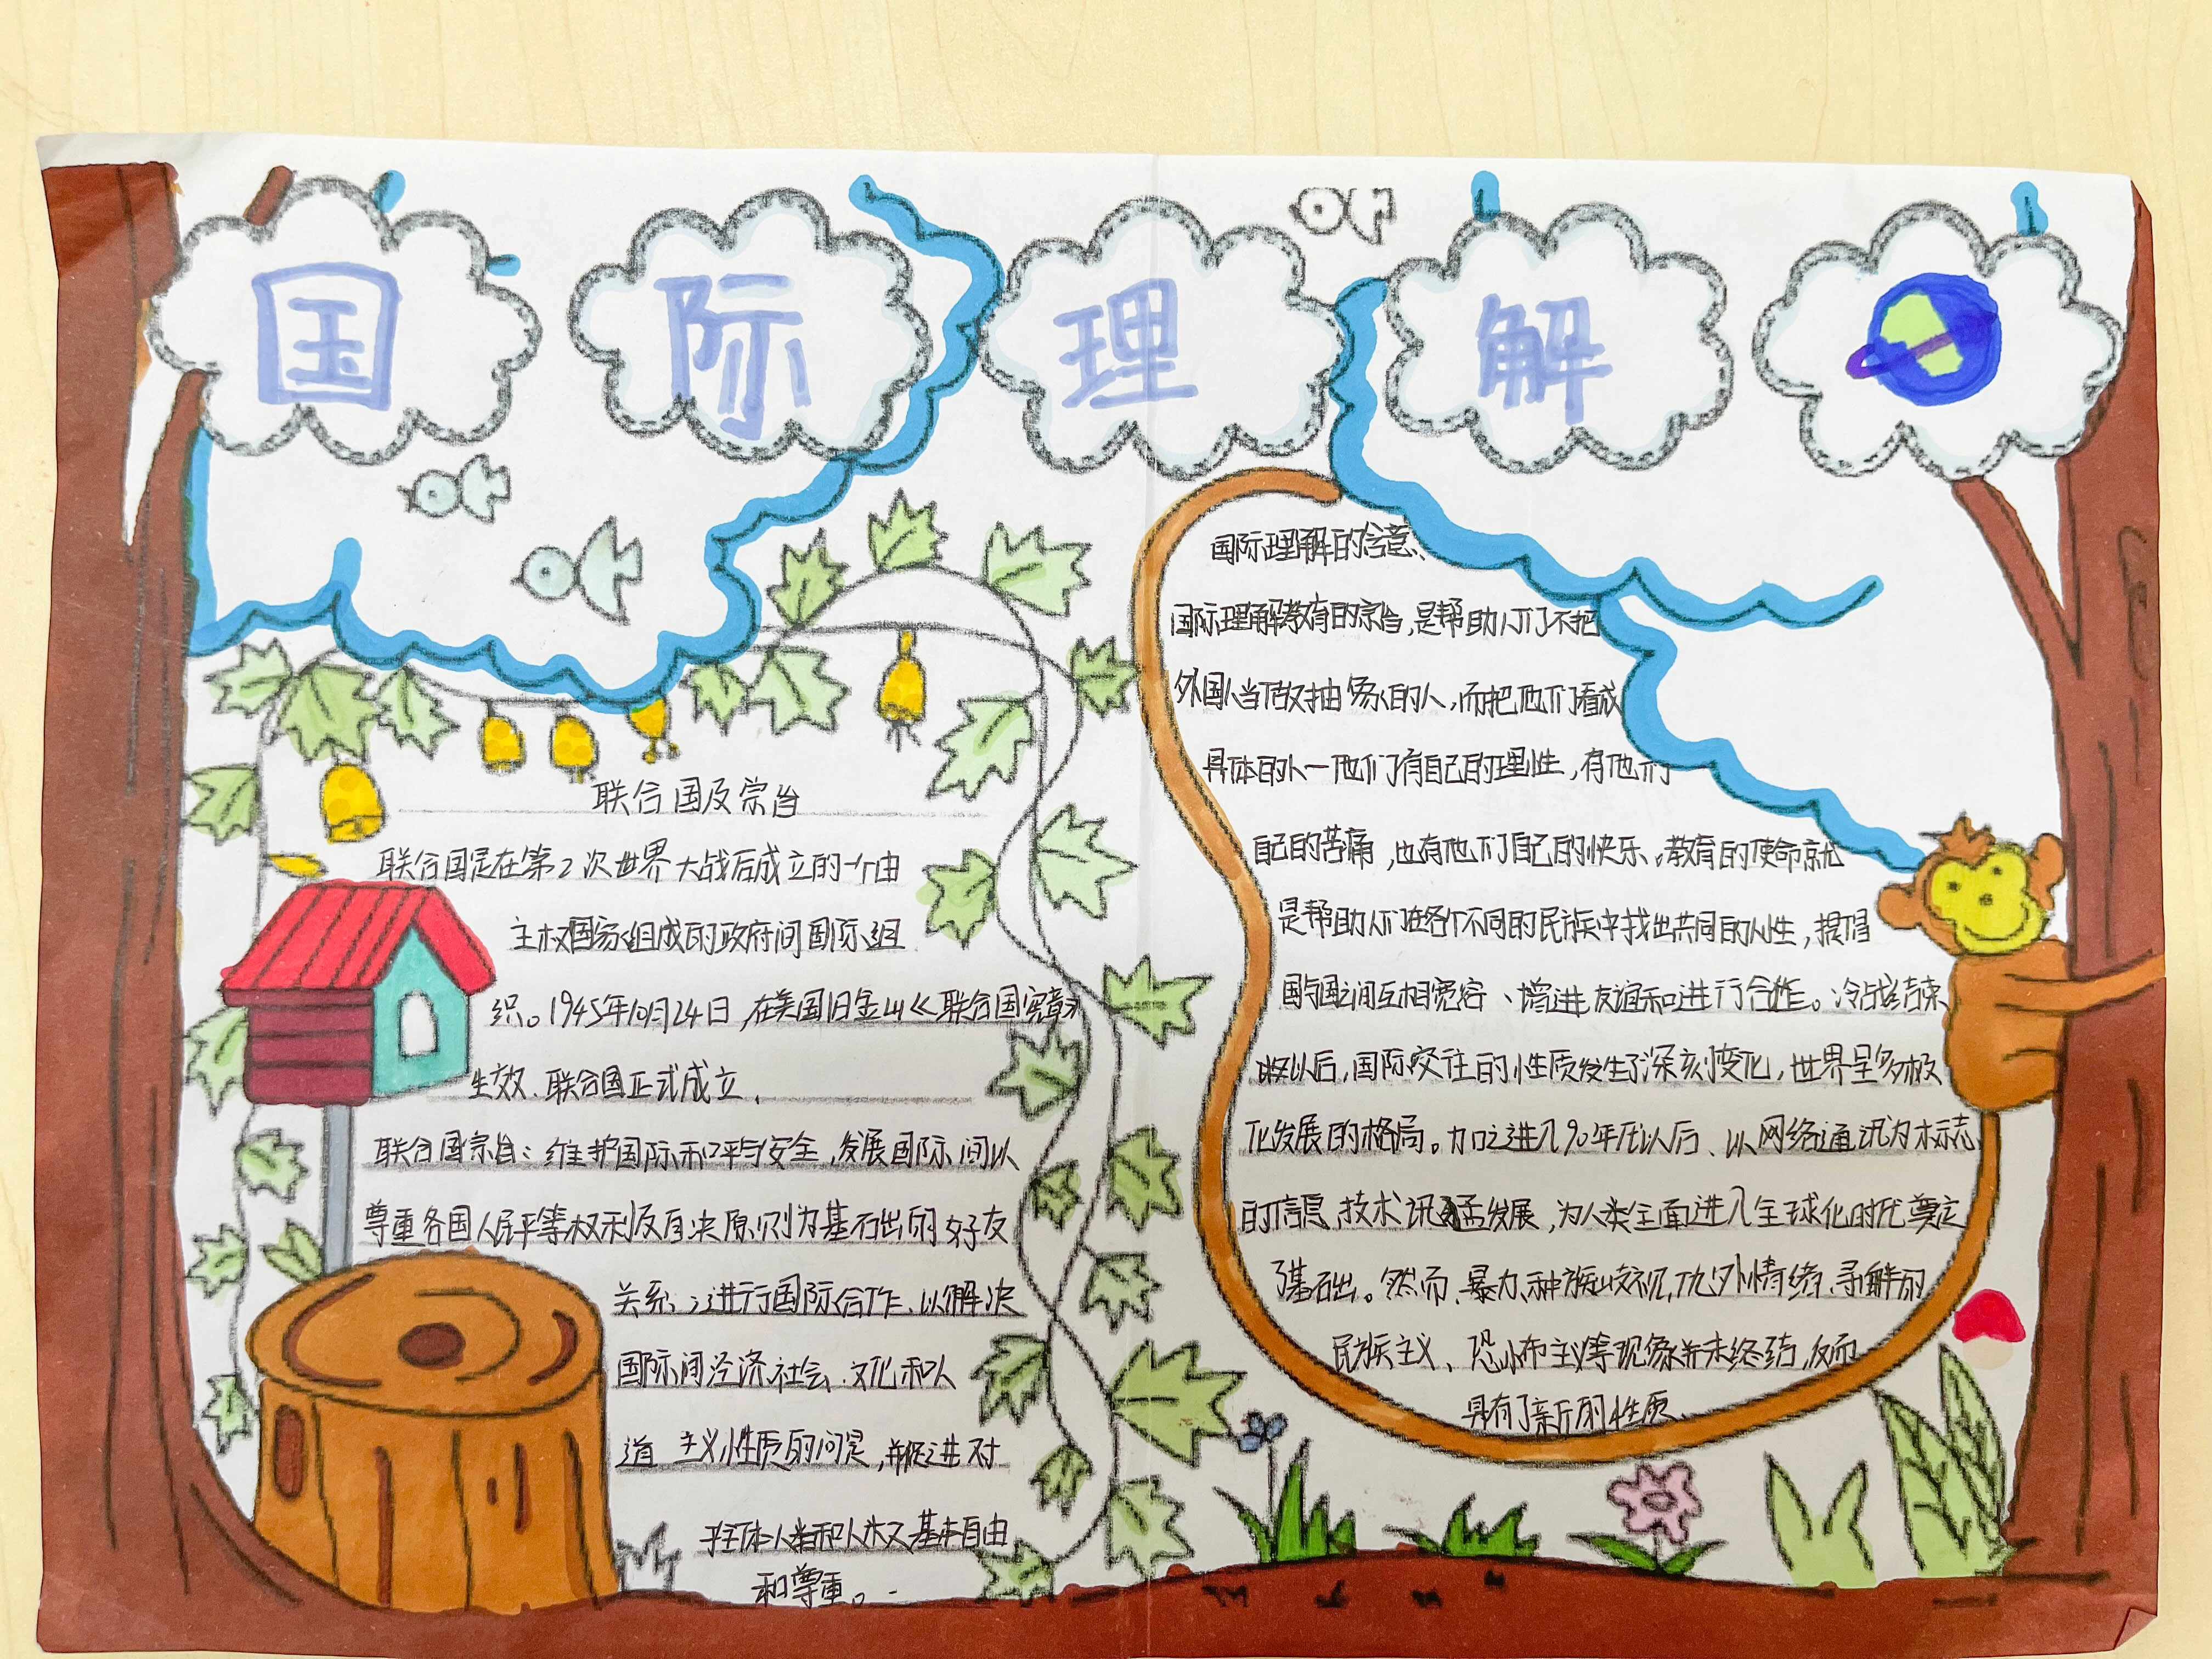 国际理解
联合国及宗旨
联合国是在第2次世界大战后成立的一个由
主权国家组成的政府间国际组
织。1945年10月24日,在美国旧金山《联合国宪章》
生效.联合国正式成立.
联合国宗旨:维护国际和平与安全,发展国际间以
尊重各国人民平等权利及自决原则为基石出的好友
关系、进行国际合作、以解决
国际间泾济社会.文化和人
道主义性质的问是,并促进对
人类和人权又基本自由
和尊重。
国际理解的含意、
国际理解教育的宗旨,是帮助人们不把
外国人当做抽象的人,而把他们看成
具体的人一他们有自己的理性,有他们
自己的苦痛,也有他们自己的快乐。教育的使命就
是帮助人们在各个不同的民族中找出共同的人性,提倡
国与国之间互相宽容、增进友谊和进行合作。冷战结束
以后,国际交往的性质发生了深刻变化,世界呈多极
化发展的格局。加之进入90年代以后、以网络通讯为标志
的信息技术讯猛发展,为人类全面进入全球化时代奠定
了基础。然而、暴力、种族歧视,仇外情绪、寻解的
民族主义、恐怖布主义等现象并未终结,反而
具有了新的性质.